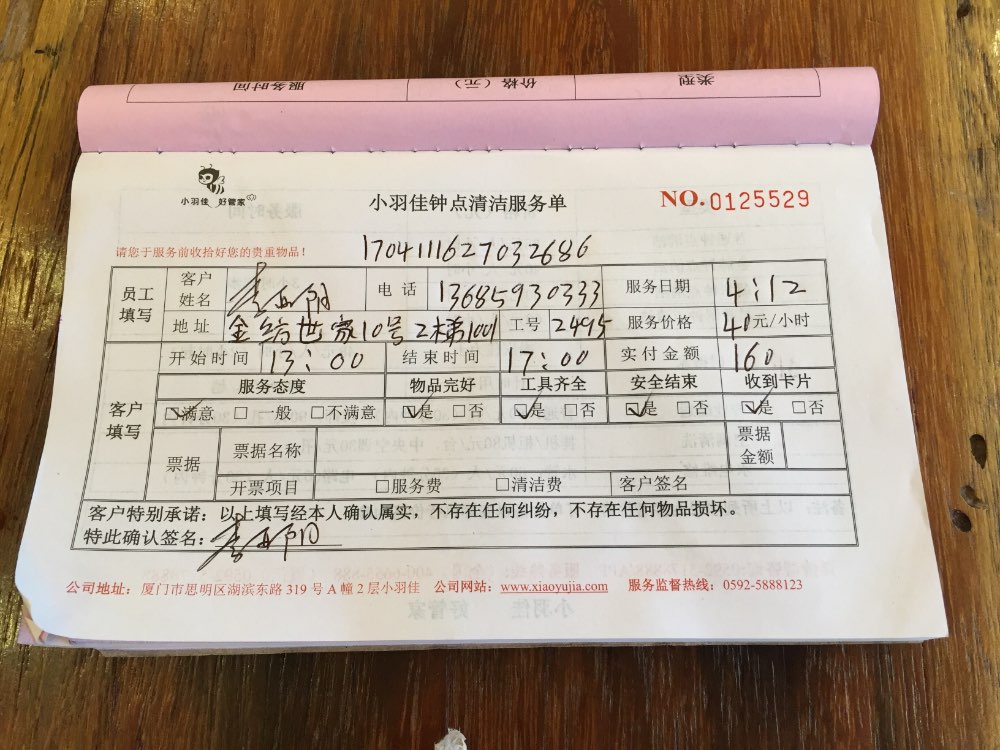 类型 价格（元） 服务时间
小羽佳 好管家
小羽佳钟点清洁服务单
NO.0125529
请您于服务前收拾好您的贵重物品！
1704111627032686
员工填写 客户姓名 电话 13685930333 服务日期 4:12
地址 金纺世家10号2梯1001 工号 2495 服务价格 40元/小时
客户填写 开始时间 13:00 结束时间 17:00 实付金额 160
服务态度 物品完好 工具齐全 安全结束 收到卡片
☑满意 □一般 □不满意 ☑是 □否 ☑是 □否 ☑是 □否 ☑是 □否
票据 票据名称 票据金额
开票项目 □服务费 □清洁费 客户签名
客户特别承诺：以上填写经本人确认属实，不存在任何纠纷，不存在任何物品损坏。
特此确认签名：
公司地址：厦门市思明区湖滨东路 319 号 A 幢 2 层小羽佳 公司网站：www.xiaoyujia.com 服务监督热线：0592-5888123